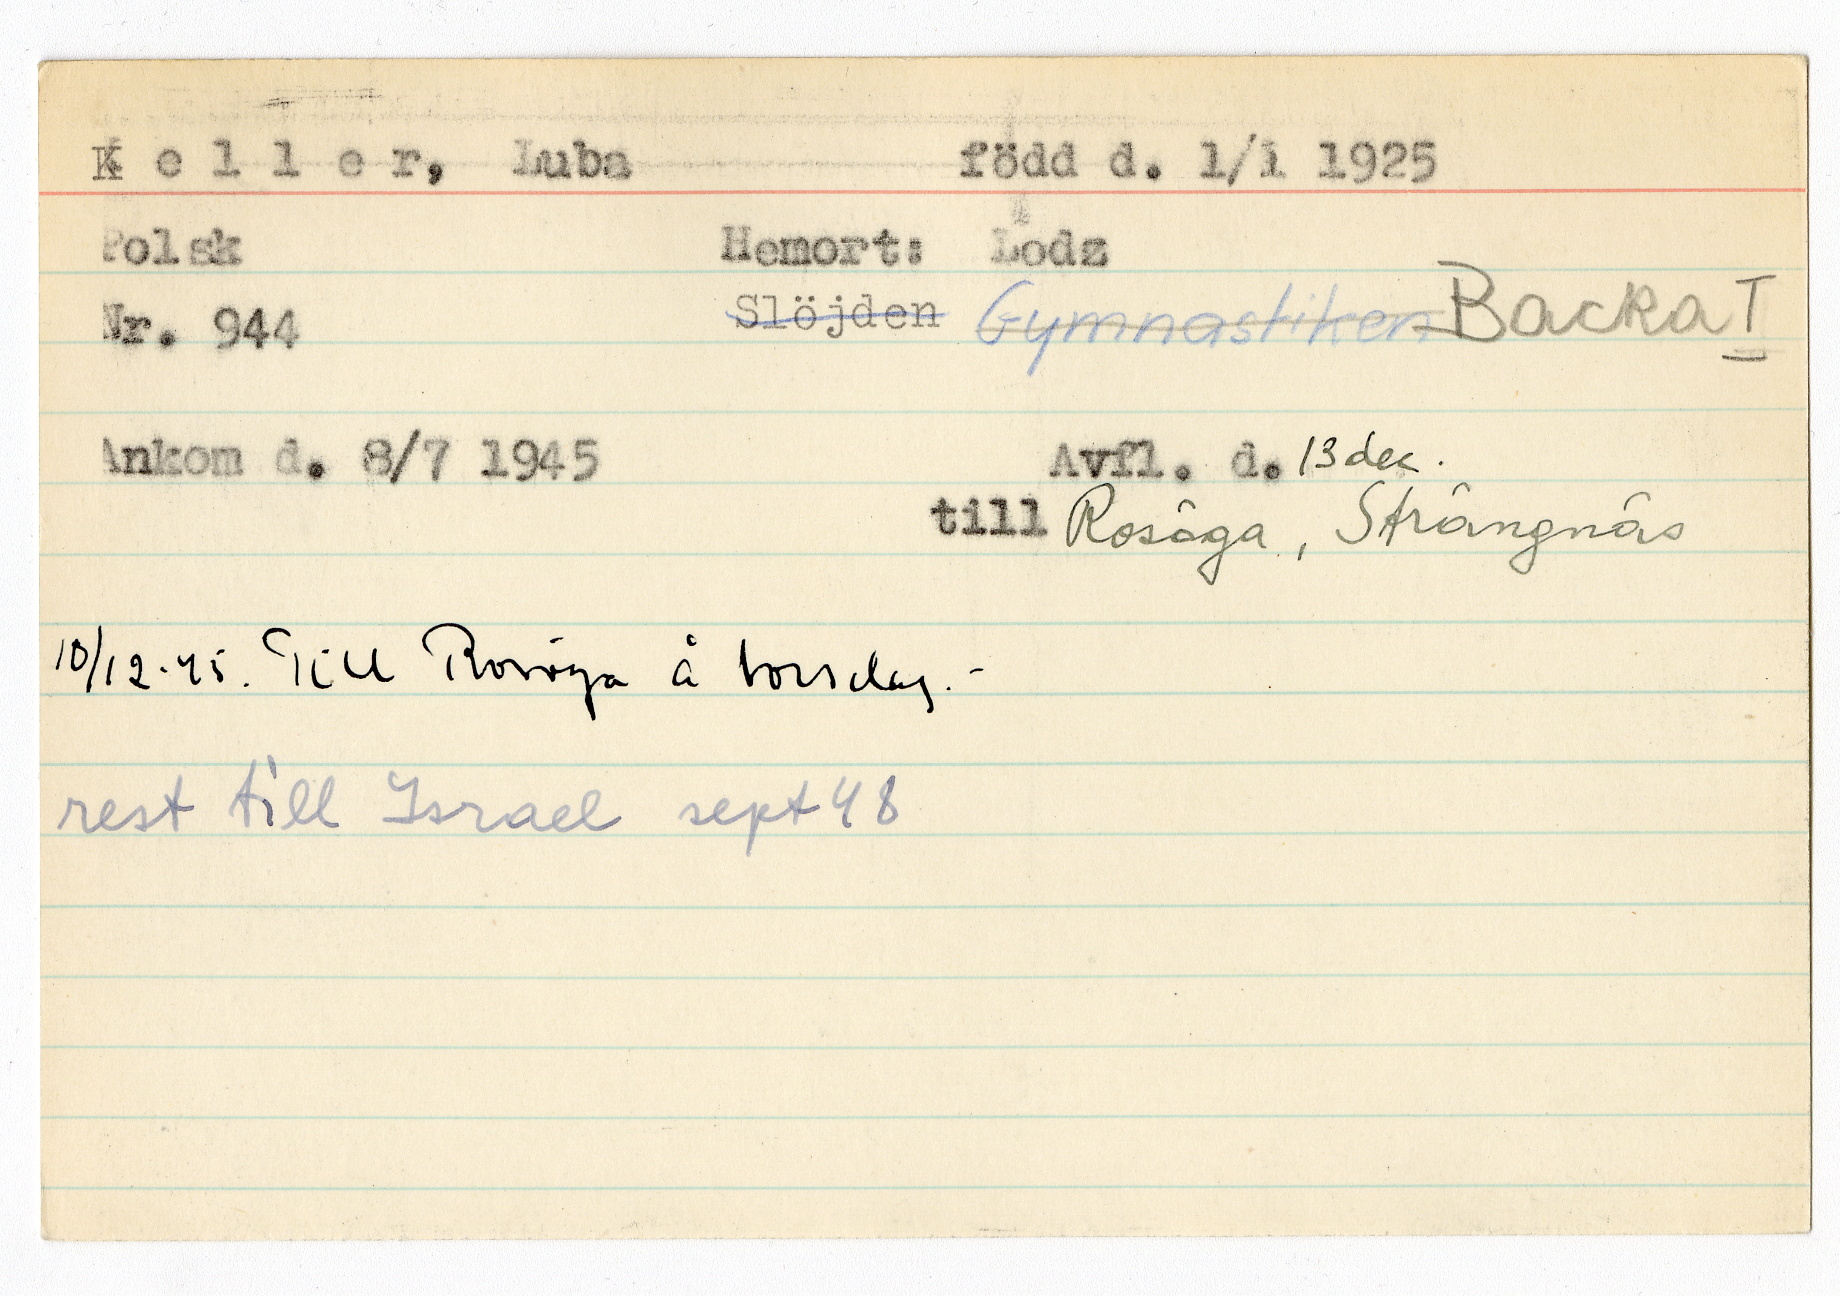 K e l l e r, Luba född d. 1/1 1925
Polsk Hemort: Lodz
Nr. 944 Slöjden Gymnastiken Backa I
Ankom d. 8/7 1945 Avfl. d. 13 dec.
till Rosöga, Strängnäs
10/12.45. Till Rosöga å torsdag.-
rest till Israel sept 48